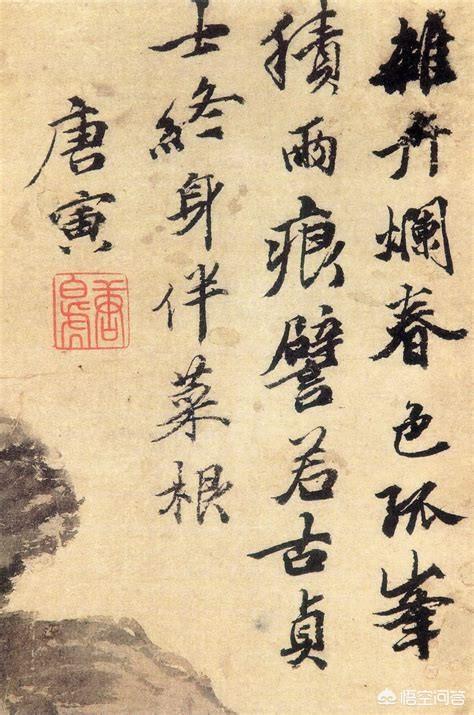 雜卉爛春色孤峯
積雨痕譬若古貞
士終身伴菜根
唐寅
唐白虎
悟空问答